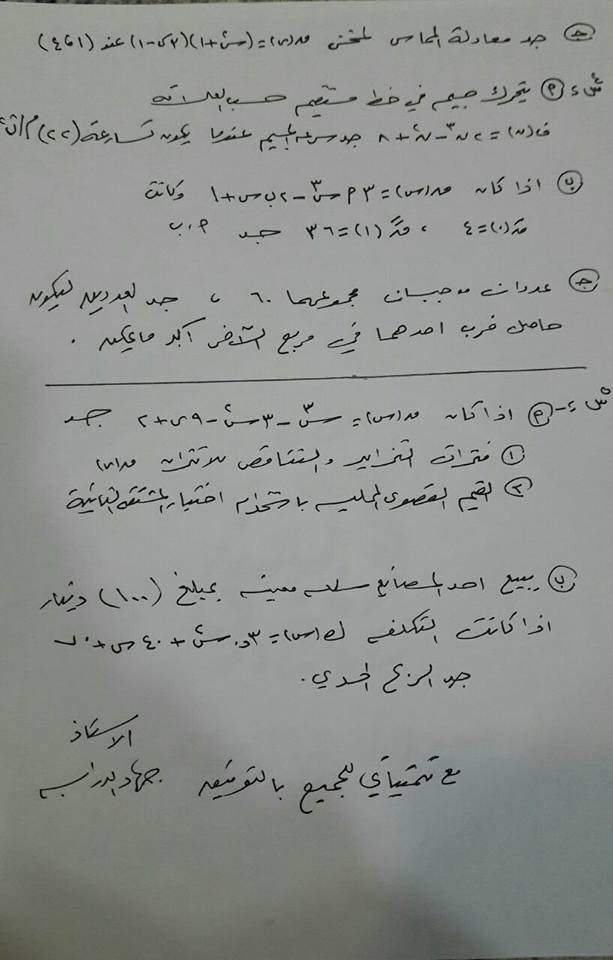 ج) جد معادلة المماس لمنحنى ق(س) = (س²+١)(٢س-١) عند (٤،١)
س٤ أ) يتحرك جسيم في خط مستقيم حسب العلاقة
ف(ن) = ٢ن³ - ن² + ٨ جد سرعة الجسيم عندما يكون تسارعه (٢٢) م/ث²
ب) اذا كان ق(س) = ٣أس³ - ٢ب س + ١ وكانت
قَ(٠) = ٤ ، قً(١) = ٣٦ جد أ، ب
ج) عددان موجبان مجموعهما ٦٠ ، جد العددين ليكون
حاصل ضرب احدهما في مربع الآخر أكبر ما يمكن .
س٥- أ) اذا كان ق(س) = س³ - ٣س² - ٩س + ٢ جد
١) فترات التزايد والتناقص للاقتران ق(س)
٢) القيم القصوى المحلية باستخدام اختبار المشتقة الثانية
ب) يبيع احد المصانع سلعة معينة بمبلغ (١٠٠) دينار
اذا كانت التكلفة ك(س) = ٣و٠ س² + ٤٠س +
جد الربح الحدي .
الاستاذ
مع تمنياتي للجميع بالتوفيق جهاد